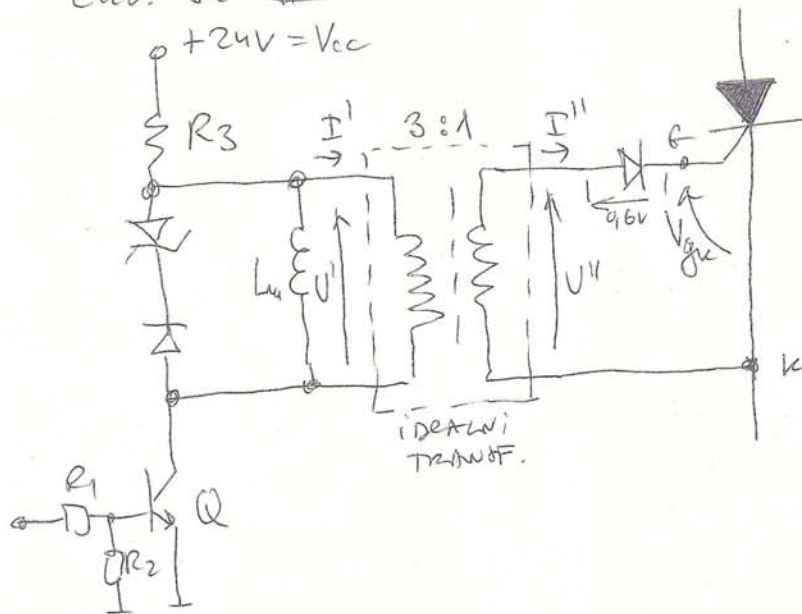 +24V = Vcc
R3
I'
3:1
I"
G
0,6V
Vgk
Lm
U'
U"
K
iDEALNi
TRANSF.
R1
Q
R2